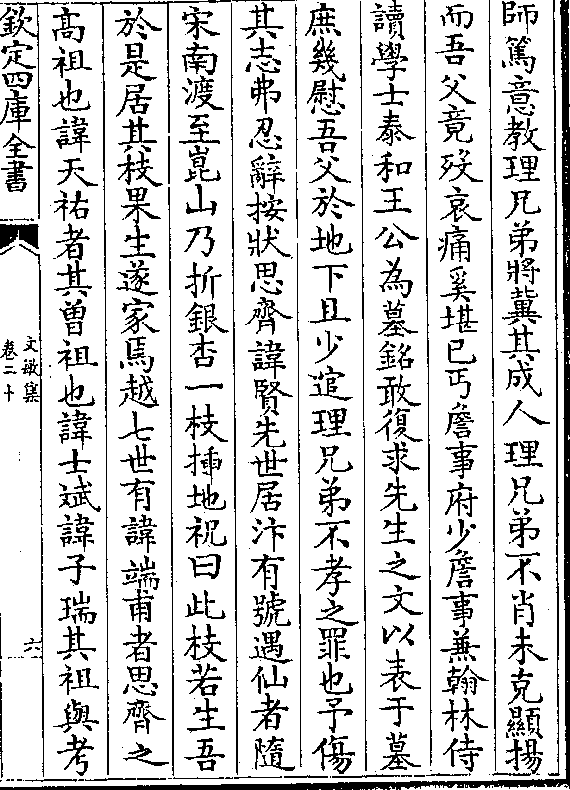 師篤意教理兄弟將冀其成人理兄弟不肖未克顯揚
而吾父竟歿哀痛奚堪已丐詹事府少詹事兼翰林侍
讀學士泰和王公為墓銘敢復求先生之文以表于墓
庶幾慰吾父於地下且少逭理兄弟不孝之罪也予傷
其志弗忍辭按狀思齊諱賢先世居汴有號遇仙者隨
宋南渡至崑山乃折銀杏一枝揷地祝曰此枝若生吾
於是居其枝果生遂家焉越七世有諱端甫者思齊之
高祖也諱天祐者其曾祖也諱士斌諱子瑞其祖與考
欽定四庫全書
文敏集
卷二十
六